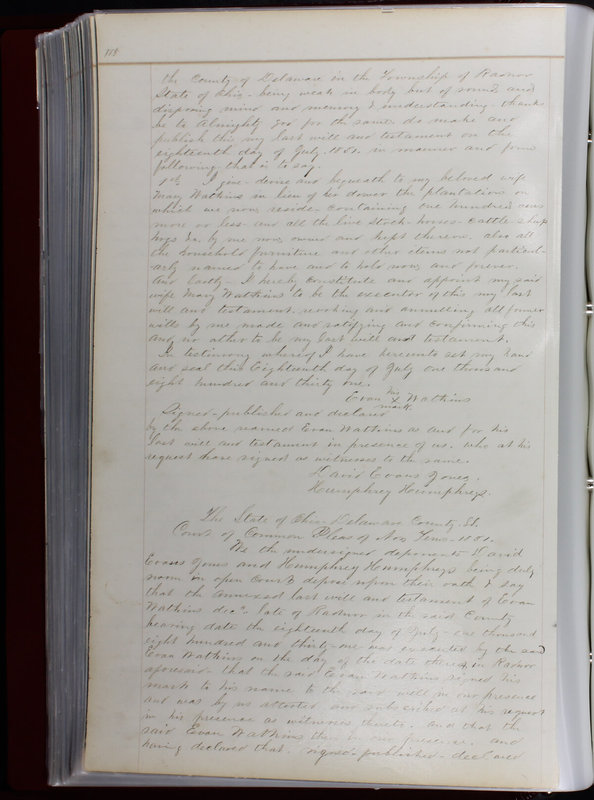 the County of Delaware in the Township of Radnor
State of Ohio - being weak in body but of sound and
disposing mind and memory & understanding - thanks
be to Almighty God for the same do make and
publish this my last will and testament on the
eighteenth day of July. 1831. in manner and form
following that is to say.
1st I give - devise and bequeath to my beloved wife
Mary Watkins in lieu of her dower the plantation on
which we now reside - containing one hundred acres
more or less - and all the live stock - horses - cattle - sheep
hogs &c. by me now owned and kept thereon. also all
the household furniture and other items not particul-
arly named to have and to hold now and forever.
And lastly - I hereby constitute and appoint my said
wife Mary Watkins to be the executor of this my last
will and testament. revoking and annulling all former
wills by me made and ratifying and confirming this
and no other to be my last will and testament.
In testimony whereof I have hereunto set my hand
and seal this Eighteenth day of July one thousand
eight hundred and thirty one.
Evan his x mark Watkins
Signed - published and declared
by the above named Evan Watkins as and for his
last will and testament in presence of us. who at his
request have signed as witnesses to the same.
David Evans Jones.
Humphrey Humphreys.
The State of Ohio Delaware County SS.
Court of Common Pleas of Nov Term - 1831.
We the undersigned deponents David
Evans Jones and Humphrey Humphreys being duly
sworn in open Court depose upon their oath & say
that the annexed last will and testament of Evan
Watkins decd. late of Radnor in the said County
bearing date the eighteenth day of July - one thousand
eight hundred and thirty-one was executed by the said
Evan Watkins on the day of the date thereof in Radnor
aforesaid - that the said Evan Watkins signed his
mark to his name to the said will in our presence
and was by us attested and subscribed at his request
in his presence as witnesses thereto. and that the
said Evan Watkins then in our presence. and
having declared that. signed - published - declared